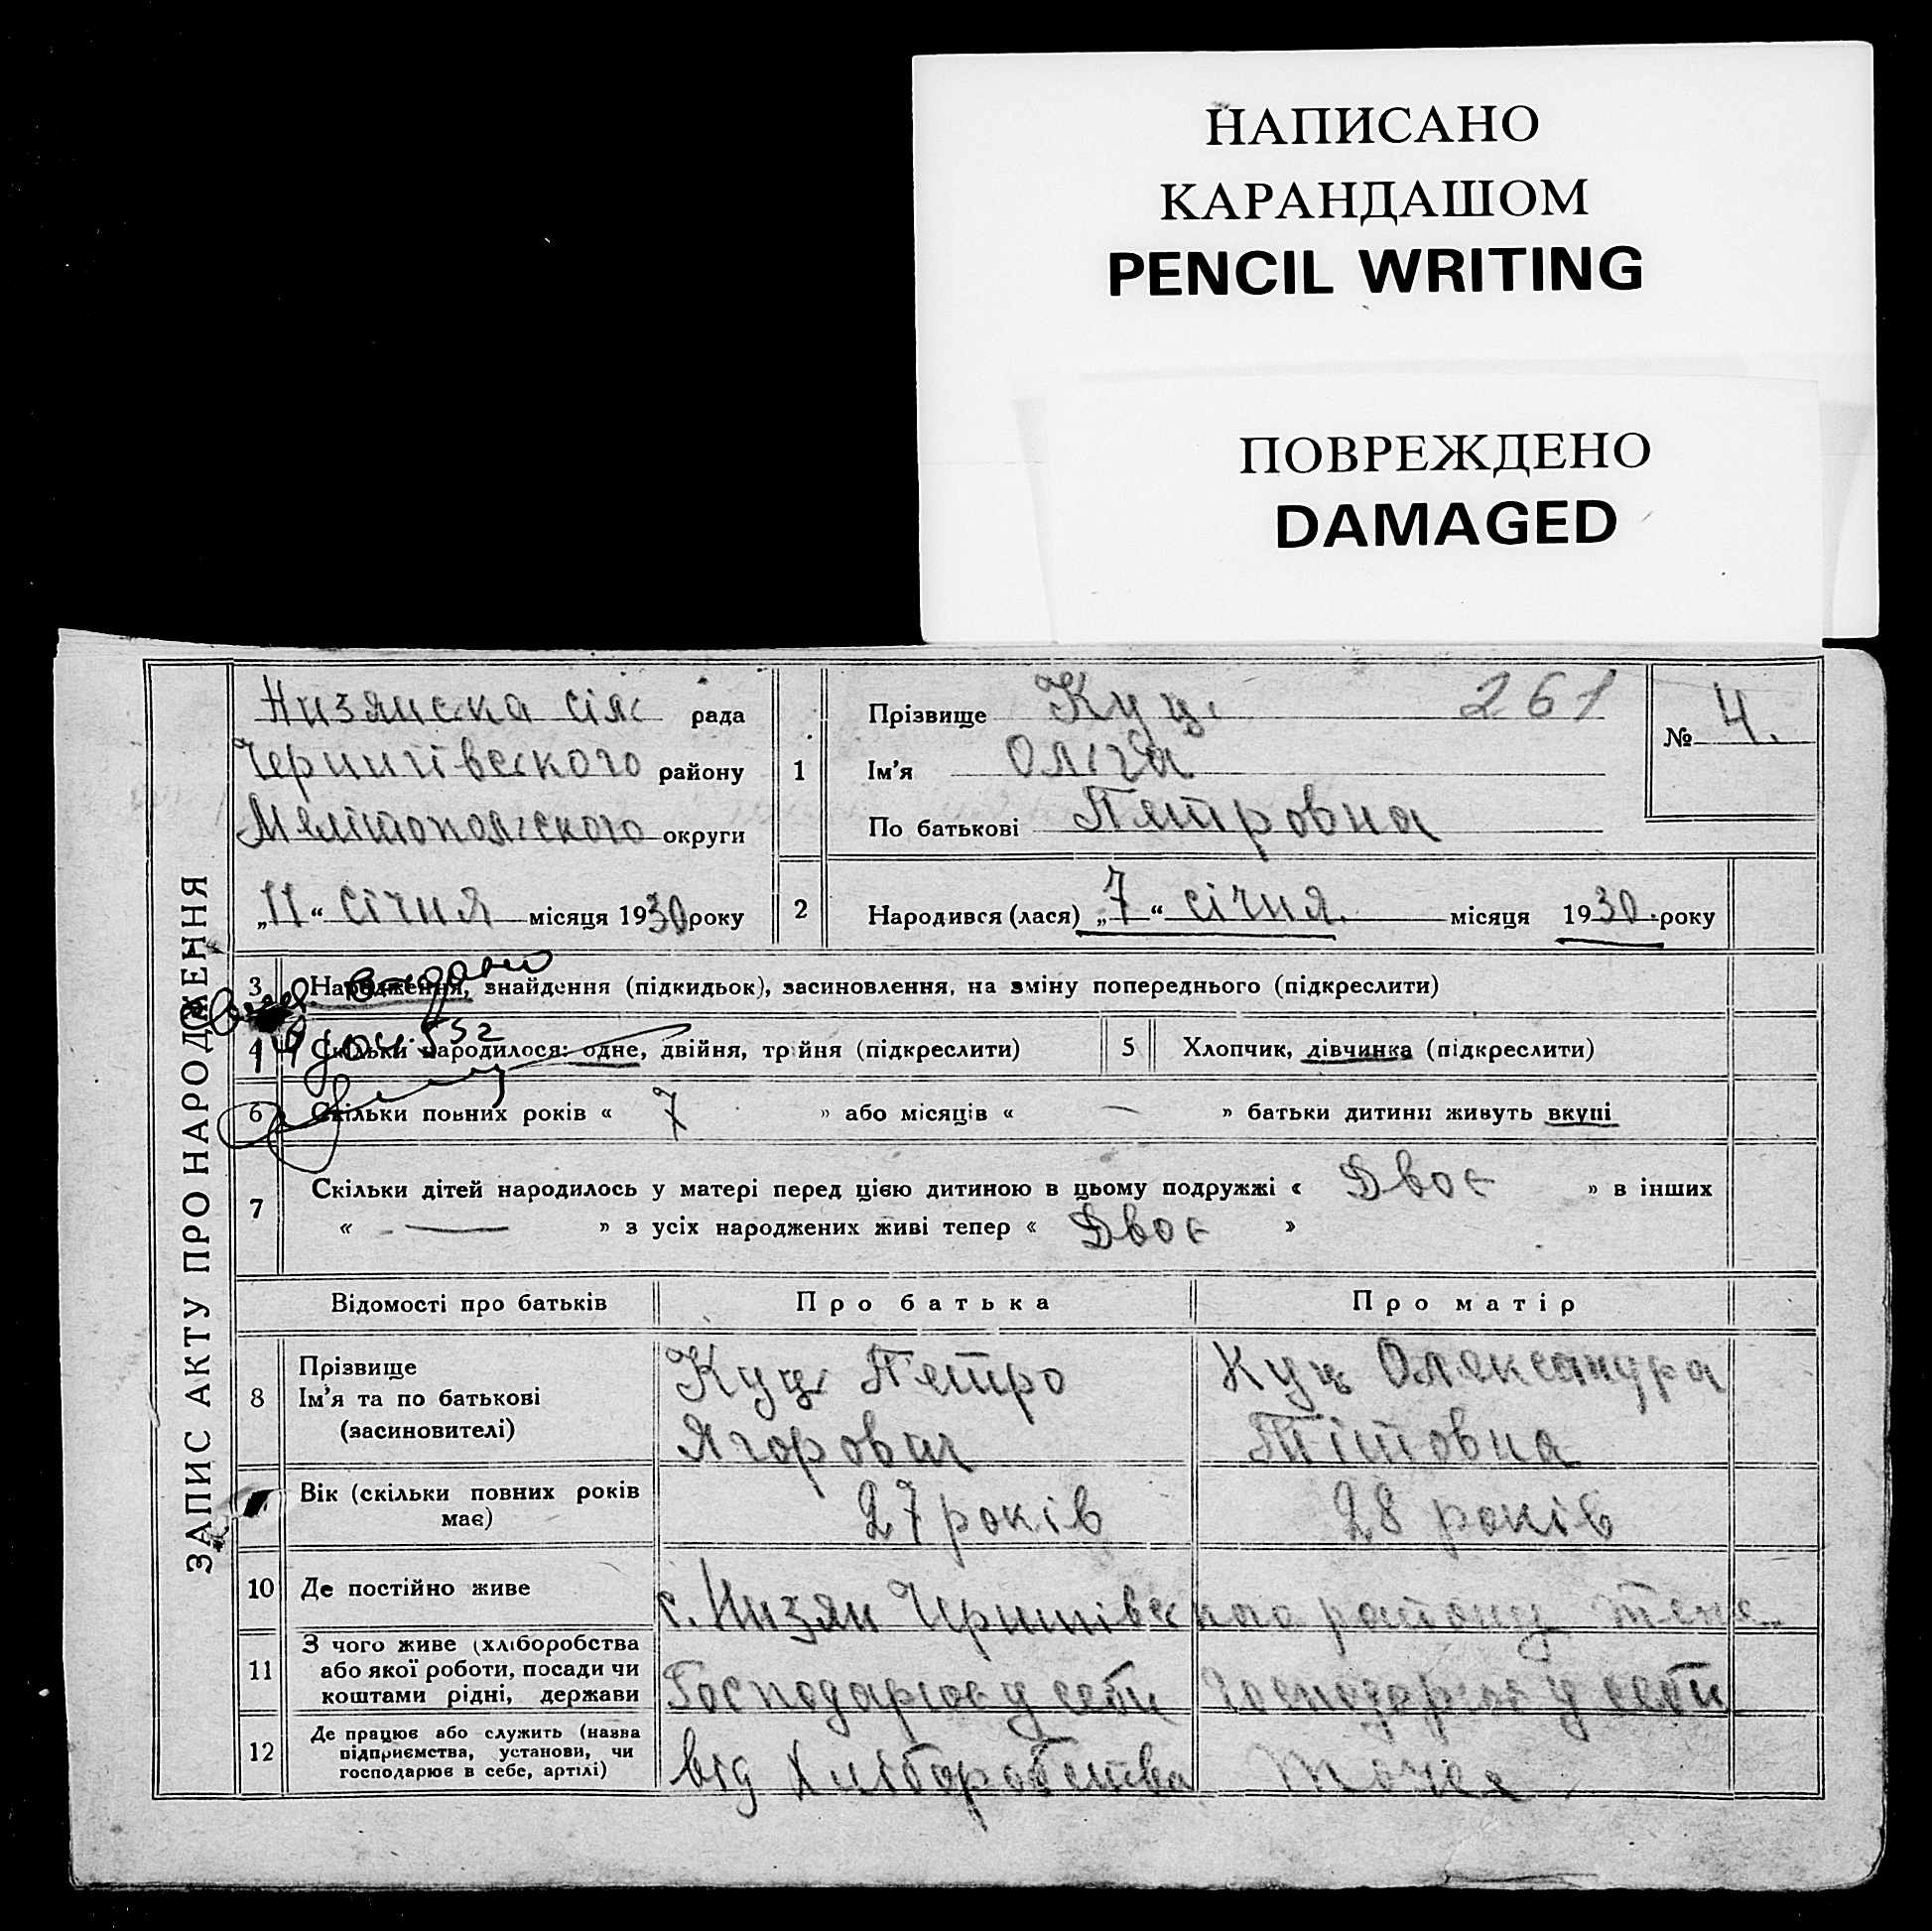 НАПИСАНО
КАРАНДАШОМ
PENCIL WRITING
ПОВРЕЖДЕНО
DAMAGED
ЗАПИС АКТУ ПРО НАРОДЖЕННЯ
Низянська сіль рада
Чернигівського району
Мелітопольського округи
„11“ січня місяця 1930 року
1
Прізвище Куць 261
Ім'я Ольга
По батькові Петровна
№ 4.
2 Народився (лася) „7“ січня. місяця 1930. року
3 Народження, знайдення (підкидьок), засиновлення, на зміну попереднього (підкреслити)
4 Скільки народилося: одне, двійня, трійня (підкреслити)
5 Хлопчик, дівчинка (підкреслити)
6 Скільки повних років « 7 » або місяців « — » батьки дитини живуть вкупі
7 Скільки дітей народилось у матері перед цією дитиною в цьому подружжі « Двоє » в інших
« — » з усіх народжених живі тепер « Двоє »
Відомості про батьків Про батька Про матір
8 Прізвище
Ім'я та по батькові
(засиновителі)
Куць Петро
Ягорович
Куць Олександра
Тітовна
Вік (скільки повних років
має)
27 років 28 років
10 Де постійно живе с. Низян Чернигівського району
11 З чого живе (хліборобства
або якої роботи, посади чи
коштами рідні, держави
Господарює у себи Господарює у себи
12 Де працює або служить (назва
підприємства, установи, чи
господарює в себе, артілі)
від Хліборобства